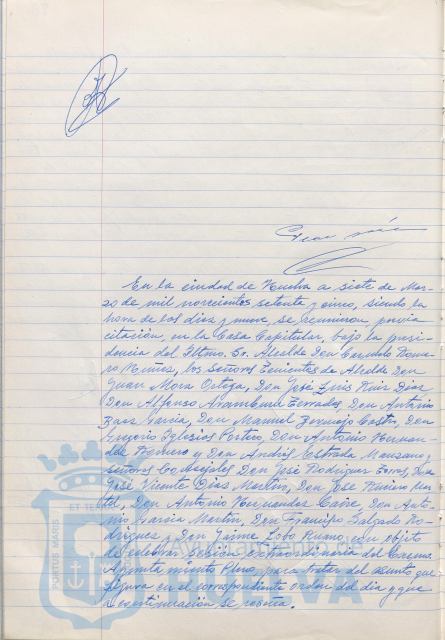 En la ciudad de Huelva a siete de Mar-
zo de mil novecientos setenta y cinco, siendo la
hora de las diez y nueve, se reunieron previa
citación, en la Casa Capitular, bajo la presi-
dencia del Iltmo. Sr. Alcalde Don
Núñez, los Señores Tenientes de Alcalde Don
Juan Mora Ortega, Don José Luis Ruiz Díaz
Don Alfonso Aramburu Terrades, Don Antonio
Baez García, Don Manuel Bermejo Castro, Don
Gregorio Iglesias Don Antonio Hernan-
dez Romero y Don Andrés Estrada Manzano y
señores Concejales Don José Rodriguez Don
José Vicente Díaz Martín, Don José Romero
Don Antonio Hernandez Don Anto-
nio García Martín, Don Francisco Salgado Ro-
driguez y Don Jaime Lobo con objeto
de celebrar Sesión extraordinaria del Excmo.
Ayuntamiento Pleno, para tratar del asunto que
figura en el correspondiente orden del día y que
a continuación se reseña.
ET TE
PORTUS MARIS
HUELVA